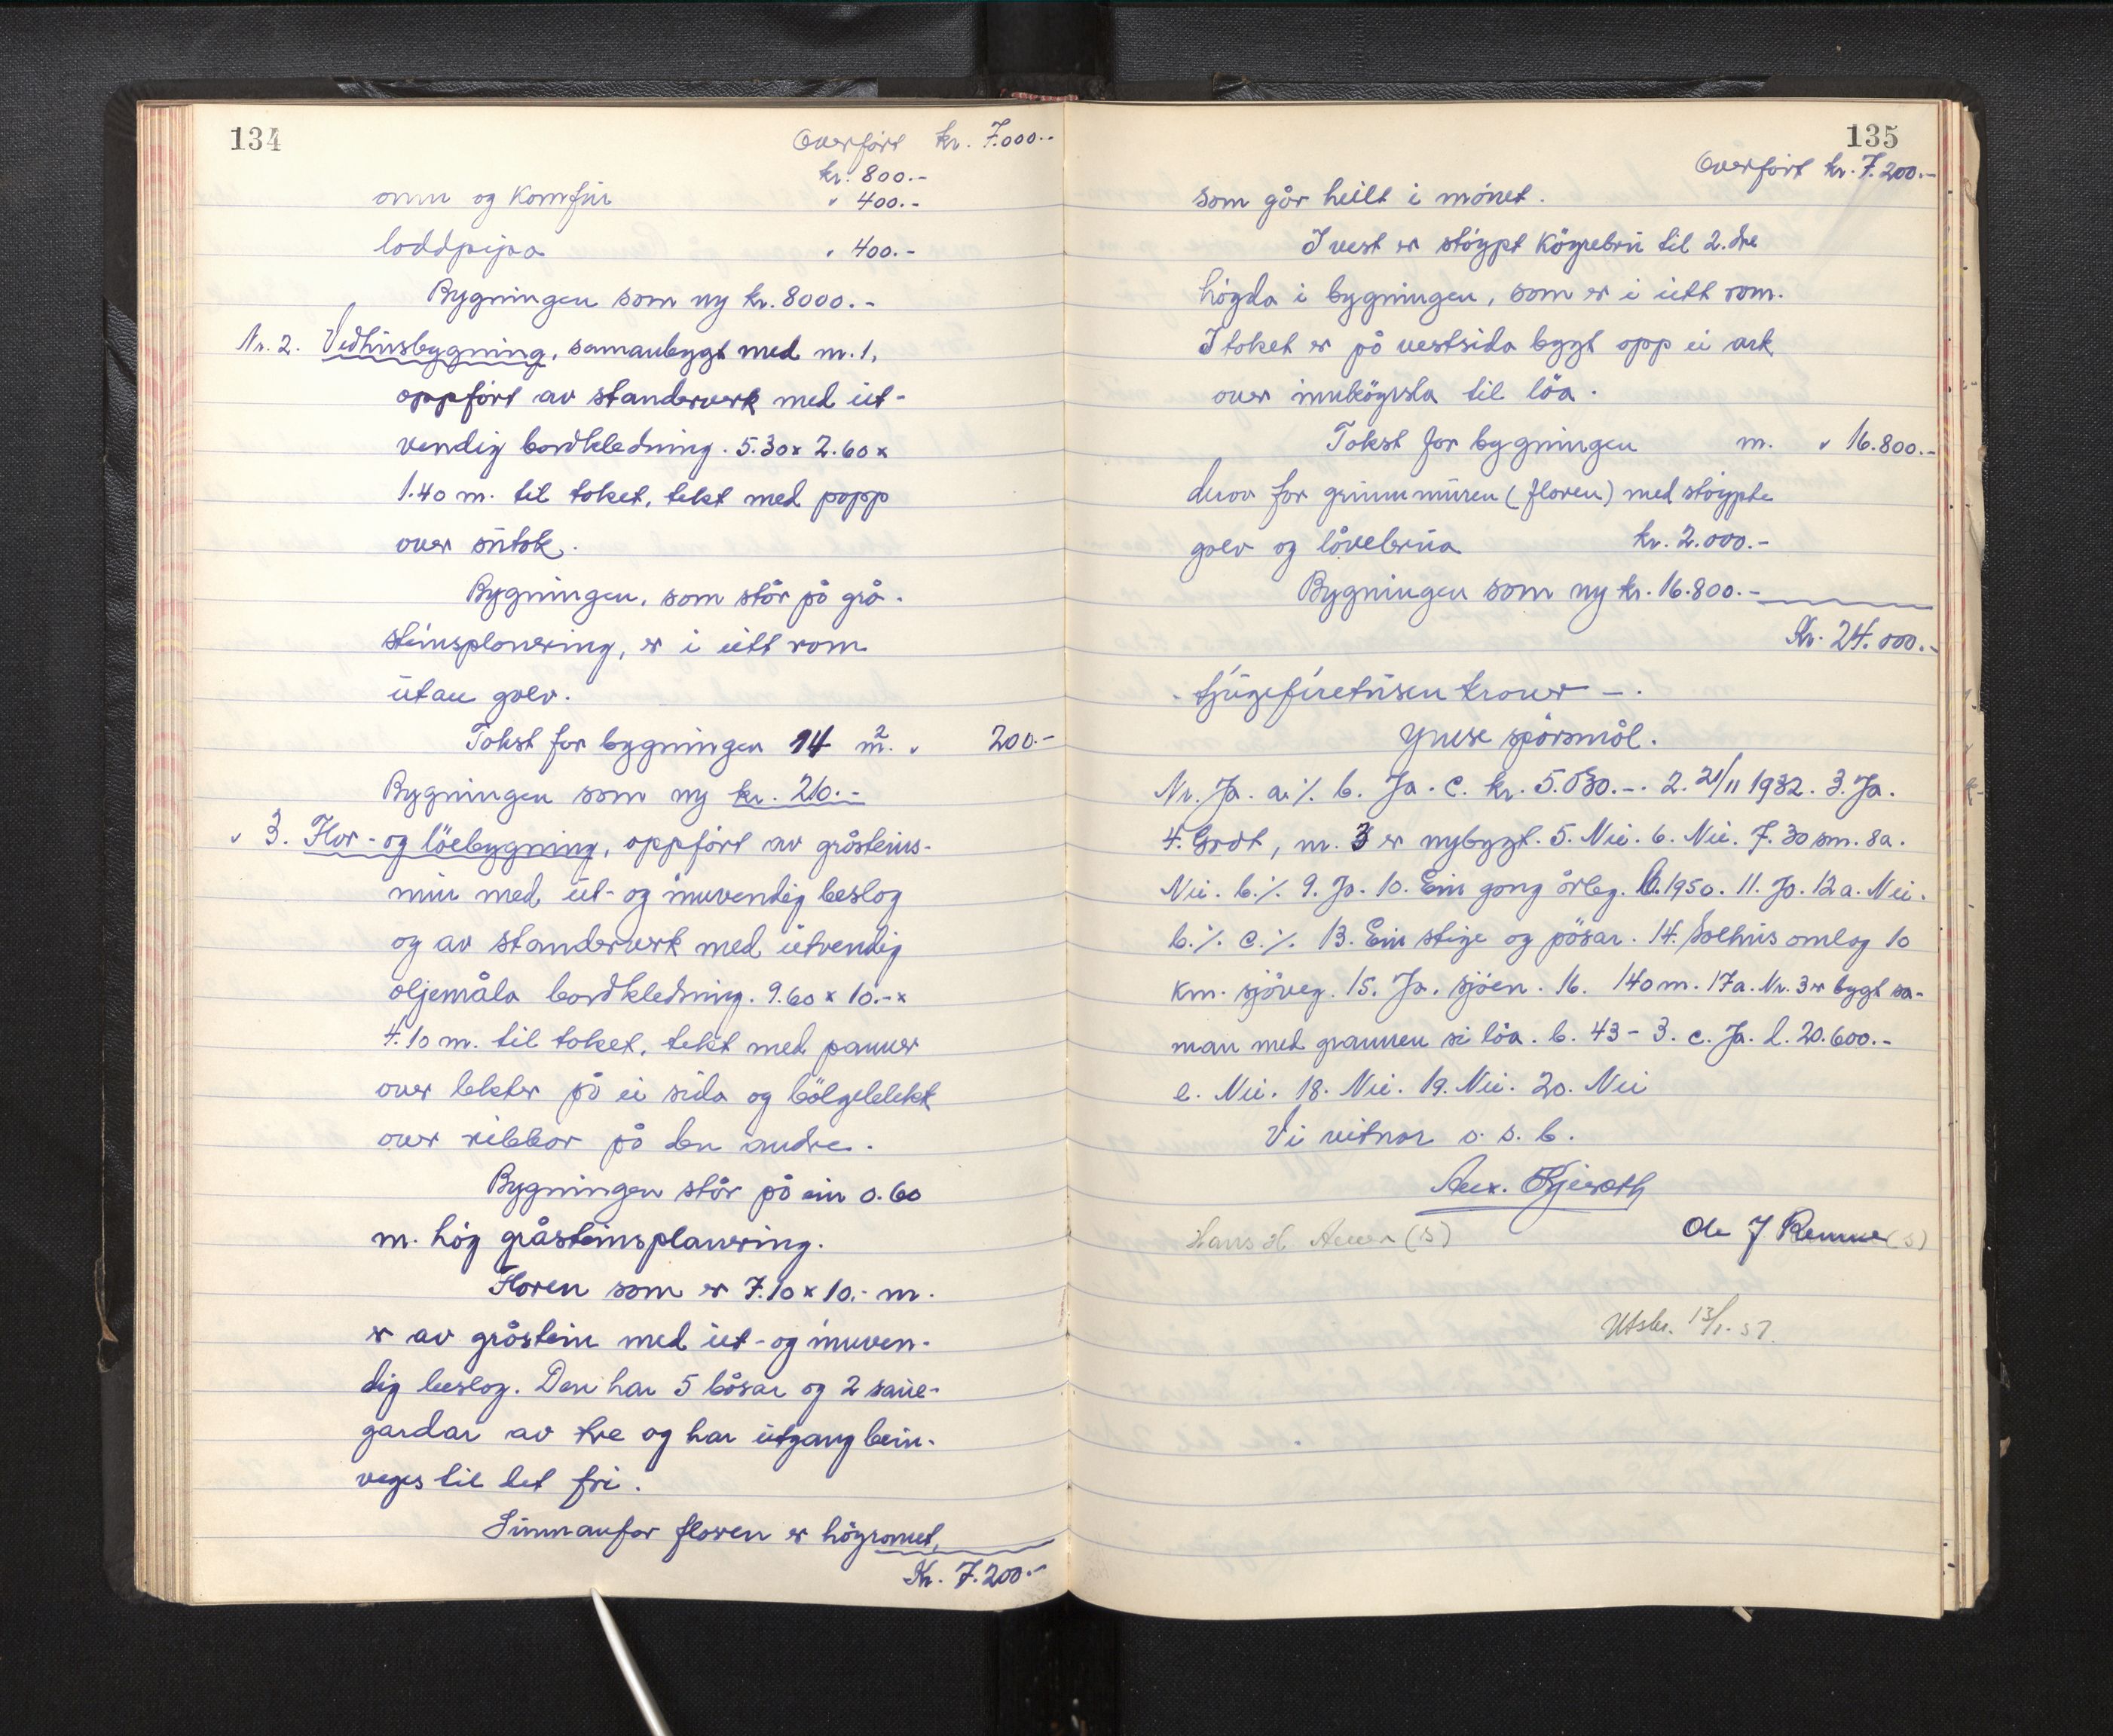 134
Overført kr. 7.000.-
kr. 800.-
omn og komfür " 400.-
loddpipa " 400.-
Bygningen som ny kr. 8000.-
Nr. 2. Vedhusbygning, samanbygt med nr. 1,
oppført av standerverk med ut-
vendig bordkledning. 5.30 x 2.60 x
1.40 m. til taket, tekt med papp
over sutak.
Bygningen, som står på grå-
steinsplanering, er i eitt rom
utan golv.
Takst for bygningen 14 m². " 200.-
Bygningen som ny kr. 210.-
" 3. Flor- og løebygning, oppført av gråsteins-
mur med ut- og innvendig beslag
og av standerverk med utvendig
oljemåla bordkledning. 9.60 x 10.- x
4.10 m. til taket, tekt med panner
over lekter på ei sida og bølgeblekk
over ribbor på den andre.
Bygningen står på ein 0.60
m. høg gråsteinsplanering.
Floren som er 7.10 x 10.- m.
er av gråstein med ut- og innven-
dig beslag. Den har 5 båsar og 2 saue-
gardar av tre og har utgang bein-
veges til det fri.
Innanfor floren er høyromet,
Kr. 7.200.-
135
Overført kr. 7.200.-
som går heilt i mønet.
I vest er støypt køyrebru til 2.dre
høgda i bygningen, som er i eitt rom.
I taket er på vestsida bygt opp ei ark
over innkøyrsla til løa.
Takst for bygningen m. " 16.800.-
derav for grunnmuren (floren) med støypte
golv og låvebrua kr. 2.000.-
Bygningen som ny kr. 16.800.-
Kr. 24.000.-
- tjugefiretusen kroner -.
Ymse spørsmål.
Nr. Ja. a. ./. b. Ja. c. kr. 5.030.-. 2. 21/11 1932. 3. Ja.
4. Godt, nr. 3 er nybygt. 5. Nei. 6. Nei. 7. 30 sm. 8a.
Nei. b. ./. 9. Ja. 10. Ein gong årleg. 1950. 11. Ja. 12 a. Nei.
b. ./. c. ./. 13. Ein stige og pøsar. 14. Solhus omlag 10
km. sjøveg. 15. Ja. sjøen. 16. 140 m. 17a. Nr. 3 er bygt sa-
man med grannen si løa. b. 43 - 3. c. Ja. d. 20.600.-
e. Nei. 18. Nei. 19. Nei. 20. Nei
Vi vitnar o. s. b.
Hans H (s)
Ole J (s)
Utskr. 13/1-57.